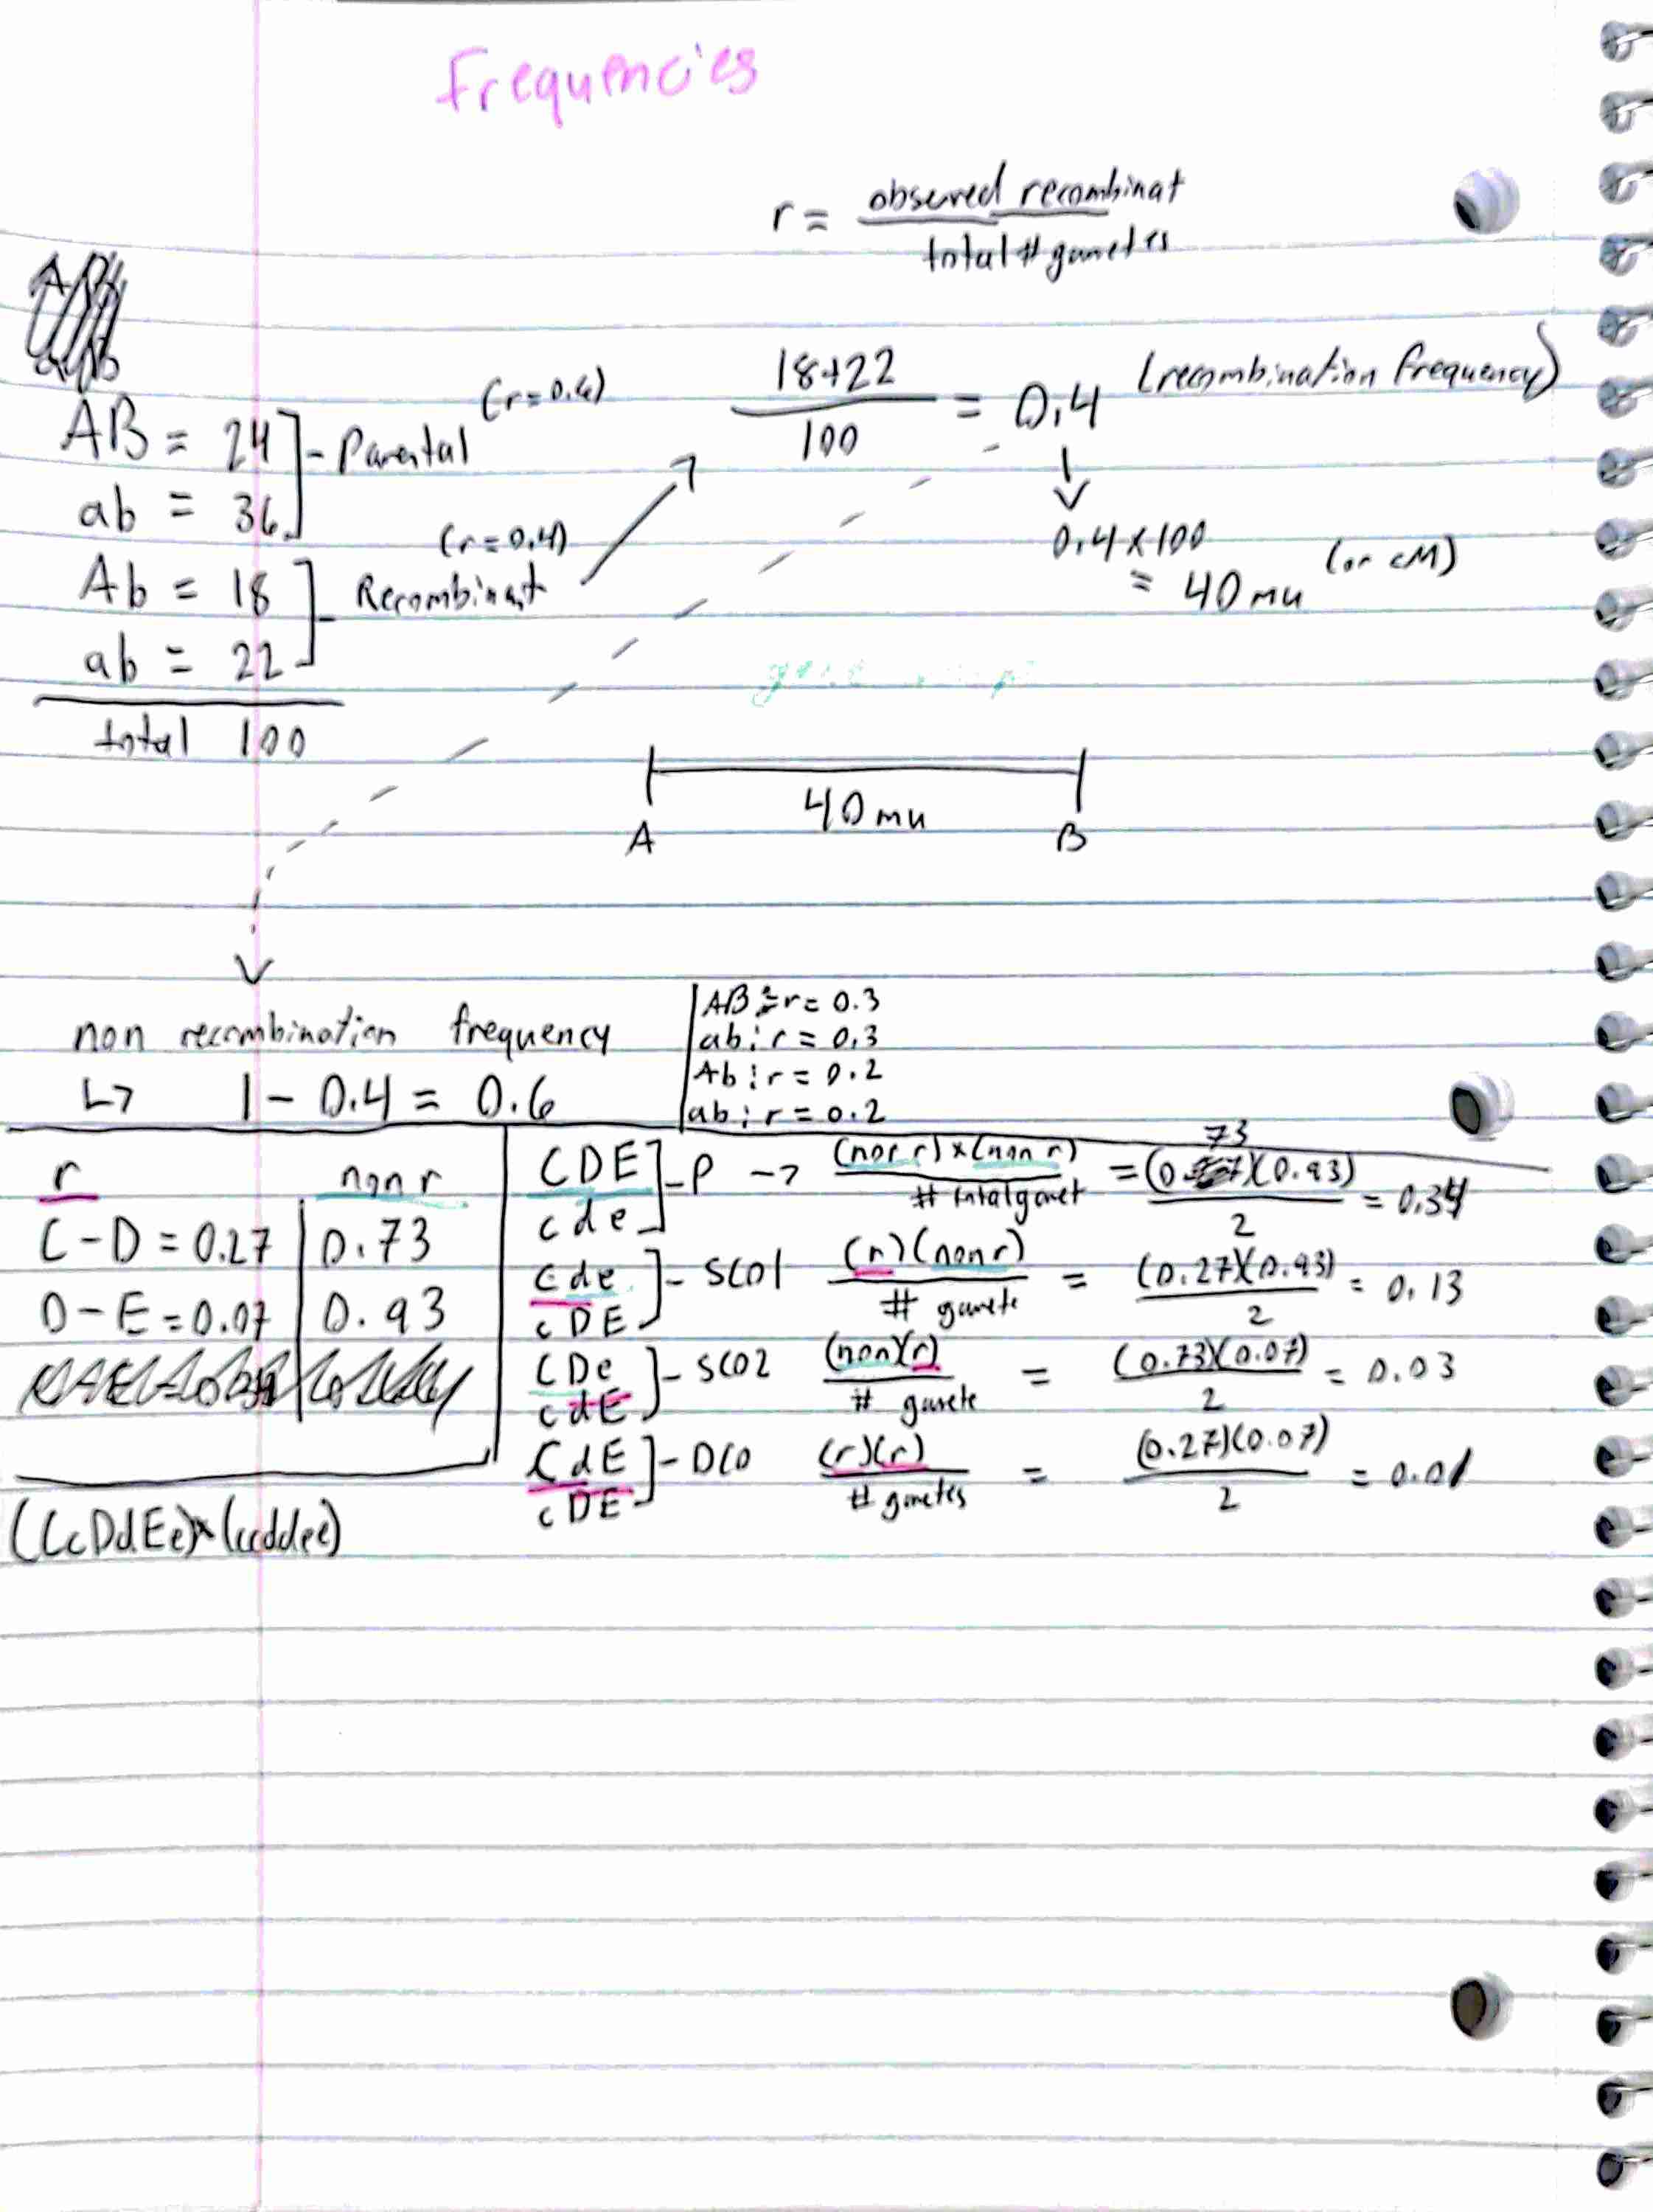 Frequencies
r = observed recombinat / total # gametes
AB = 24 ] - Parental (r=0.6)
ab = 36
Ab = 18 ] - Recombinant (r=0.4)
ab = 22
total 100
18+22 / 100 = 0.4 (recombination frequency)
0.4 x 100
= 40 mu (or cM)
40 mu
A B
non recombination frequency
↳ 1 - 0.4 = 0.6
AB: r = 0.3
ab: r = 0.3
Ab: r = 0.2
ab: r = 0.2
r non r
C-D = 0.27 | 0.73
D-E = 0.07 | 0.93
(CcDdEe) x (ccddee)
CDE
cde ] - P -> (non r) x (non r) / # total gamet = (0.73)(0.93) / 2 = 0.34
Cde
cDE ] - SCO1 (r)(non r) / # gamete = (0.27)(0.93) / 2 = 0.13
CDe
cdE ] - SCO2 (non)(r) / # gamete = (0.73)(0.07) / 2 = 0.03
CdE
cDE ] - DCO (r)(r) / # gametes = (0.27)(0.07) / 2 = 0.01